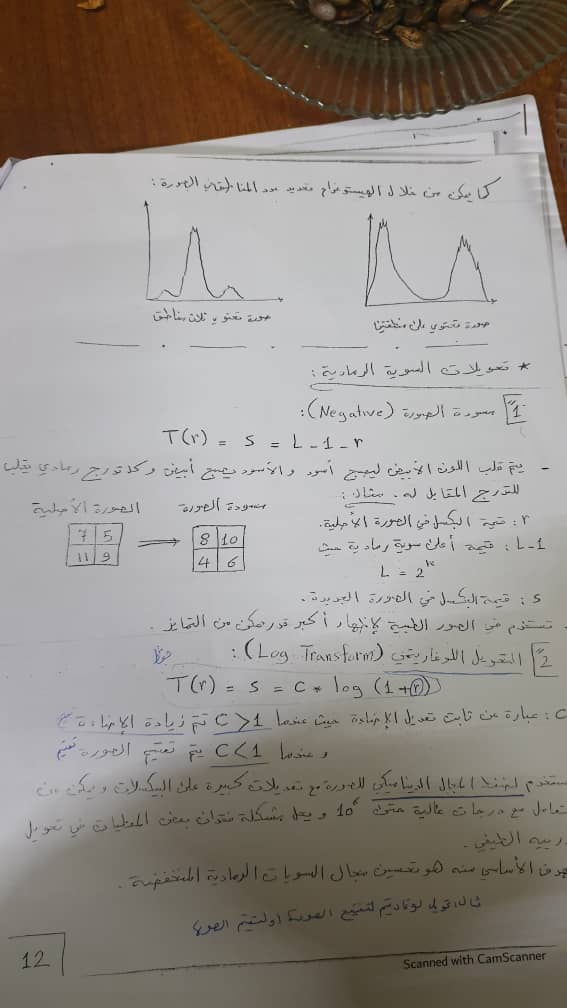 كما يمكن من خلال الهيستوغرام تحديد عدد المناطق في الصورة:
صورة تحتوي على منطقتين
صورة تحتوي ثلاث مناطق
* تحويلات السوية الرمادية:
1 مسودة الصورة (Negative):
T(r) = s = L - 1 - r
- يتم قلب اللون الأبيض ليصبح أسود والأسود يصبح أبيض وكل تدرج رمادي يقلب
للتدرج المقابل له. مثال:
مسودة الصورة
الصورة الأصلية
8 10
4 6
7 5
11 9
r: قيمة البكسل في الصورة الأصلية.
L-1: قيمة أعلى سوية رمادية حيث
L = 2^k
s: قيمة البكسل في الصورة الجديدة.
تستخدم في الصور الطبية لإظهار أكبر قدر ممكن من التمايز.
2 التحويل اللوغاريتمي (Log Transform):
T(r) = s = c * log (1+r)
C: عبارة عن ثابت تعديل الإضاءة حيث عندما C>1 تتم زيادة الإضاءة
وعندما C<1 يتم تعتيم الصورة
ستخدم لضغط المجال الديناميكي للصورة مع تعديلات كبيرة على البيكسلات ويمكن من
تعامل مع درجات عالية حتى 10^6 ويحل مشكلة فقدان بعض المعطيات في تحويل
الطيفي.
الأساسي منه هو تحسين مجال السويات الرمادية المنخفضة.
12
Scanned with CamScanner